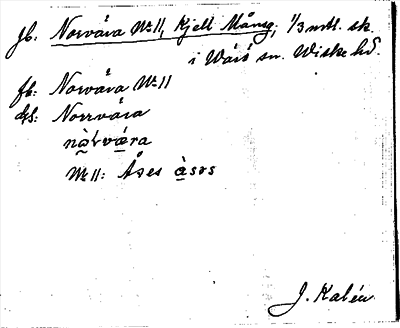 jb. Norvära № 11, Kjell Månsg, 1/3 mtl. sk.
i Wärö sn. Wiske hd.
fb: Norvära № 11
ds: Norrvära
nàrværa
№ 11: Åses àsəs
J. Kalén